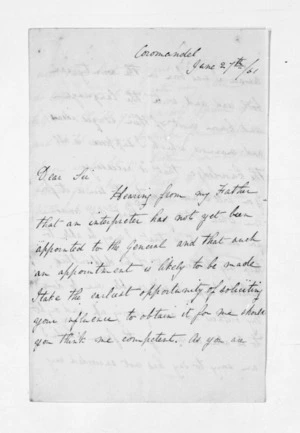 Coromandel
June 27th /61
Dear Sir
Hearing from my Father
that an interpreter has not yet been
appointed to the General and that such
an appointment is likely to be made
I take the earliest opportunity of soliciting
your influence to obtain it for me should
you think me competent. As you are